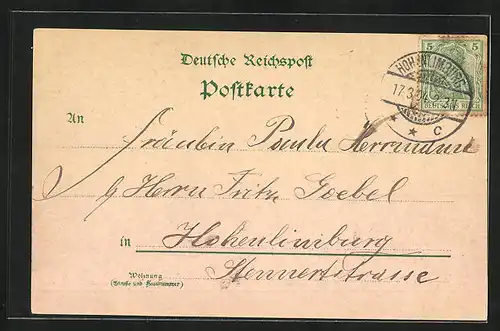 Deutsche Reichspost
Postkarte
5 5
HOHENLIMBURG
17.3.
DEUTSCHES REICH
* * c
An
Fräulein Paula Herrmann
p/ Herrn Fritz Goebel
in Hohenlimburg
Wohnung
(Straße und Hausnummer)
Stennertstrasse